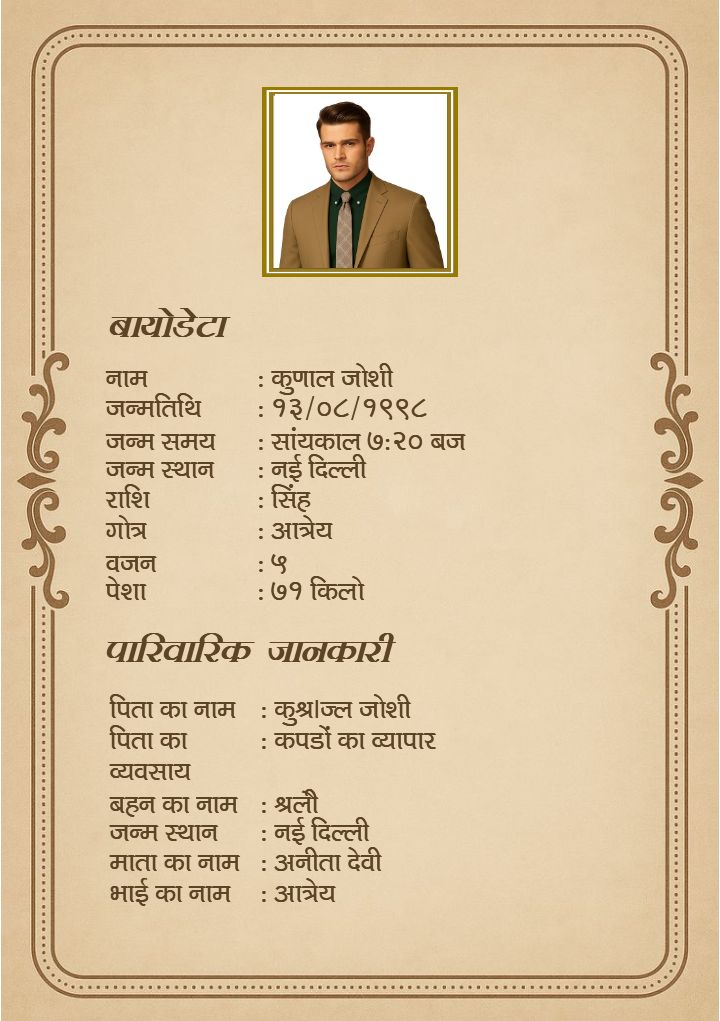 बायोडेटा
नाम : कुणाल जोशी
जन्मतिथि : १३/०८/१९९८
जन्म समय : सांयकाल ७:२० बज
जन्म स्थान : नई दिल्ली
राशि : सिंह
गोत्र : आत्रेय
वजन : ५
पेशा : ७१ किलो
पारिवारिक जानकारी
पिता का नाम : कुश्र।ज्ल जोशी
पिता का : कपडों का व्यापार
व्यवसाय
बहन का नाम : श्रलौ
जन्म स्थान : नई दिल्ली
माता का नाम : अनीता देवी
भाई का नाम : आत्रेय